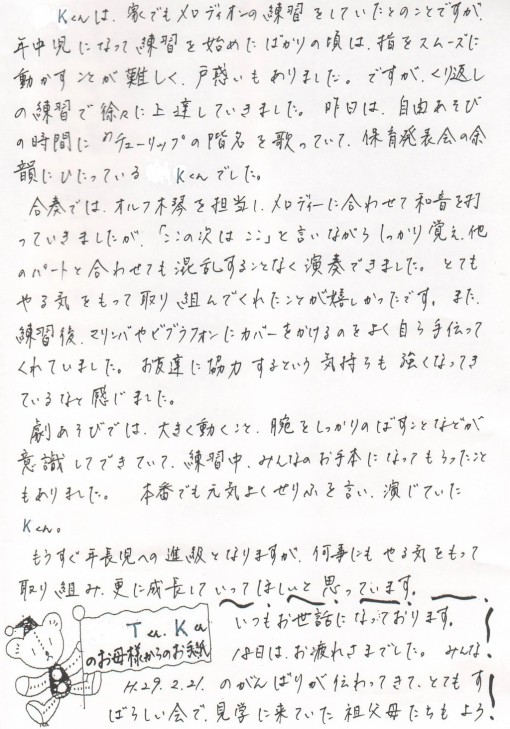 Kくんは、家でもメロディオンの練習をしていたとのことですが、
年中児になって練習を始めたばかりの頃は、指をスムーズに
動かすことが難しく、戸惑いもありました。ですが、くり返し
の練習で徐々に上達していきました。昨日は、自由あそび
の時間に"チューリップ"の階名を歌っていて、保育発表会の余
韻にひたっている Kくんでした。
合奏では、オルフ木琴を担当し、メロディーに合わせて和音を打
っていきましたが、「ここの次はここ」と言いながらしっかり覚え、他
のパートと合わせても混乱することなく演奏できました。とても
やる気をもって取り組んでくれたことが嬉しかったです。また、
練習後、マリンバやビブラフォンにカバーをかけるのをよく自ら手伝って
くれていました。お友達に協力するという気持ちも強くなってき
ているなと感じました。
劇あそびでは、大きく動くこと、腕をしっかりのばすことなどが
意識してできていて、練習中、みんなのお手本になってもらったこと
もありました。 本番でも元気よくせりふを言い、演じていた
Kくん。
もうすぐ年長児への進級となりますが、何事にもやる気をもって
取り組み、更に成長していってほしいと思っています。
Tくん、Kくん
のお母様からのお手紙
H.29.2.21.
いつもお世話になっております。
18日は、お疲れさまでした。みんな
のがんばりが伝わってきて、とてもす
ばらしい会で、見学に来ていた祖父母たちもよろ